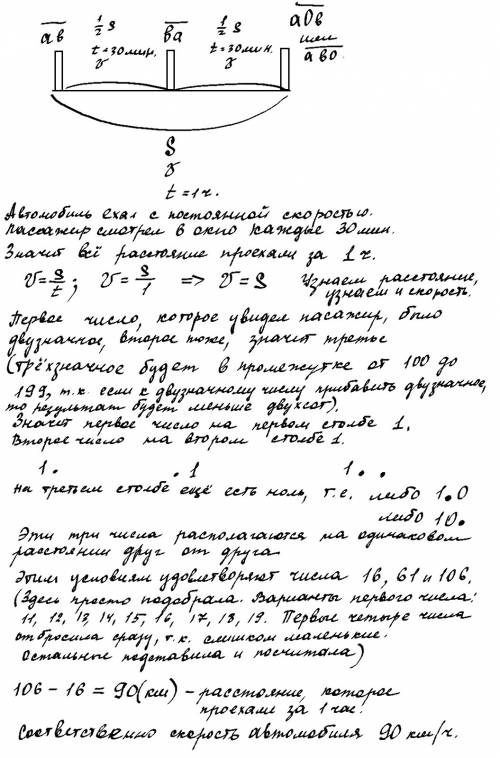 ав ½ S ва ½ S а0в
t = 30 мин. t = 30 мин. или
v v ав0
S
v
t = 1 ч.
Автомобиль ехал с постоянной скоростью.
Пассажир смотрел в окно каждые 30 мин.
Значит всё расстояние проехали за 1 ч.
v = S/t ; v = S/1 => v = S Узнаем расстояние,
узнаем и скорость.
Первое число, которое увидел пасажир, было
двузначное, второе тоже, значит третье
(трёхзначное будет в промежутке от 100 до
199, т.к. если к двузначному числу прибавить двузначное,
то результат будет меньше двухсот).
Значит первое число на первом столбе 1.
Второе число на втором столбе 1.
1 . . 1 1 . .
На третьем столбе ещё есть ноль, т.е. либо 1.0
либо 10.
Эти три числа располагаются на одинаковом
расстоянии друг от друга
Этим условиям удовлетворяют числа 16, 61 и 106.
(Здесь просто подобрала. Варианты первого числа:
11, 12, 13, 14, 15, 16, 17, 18, 19. Первые четыре числа
отбросила сразу, т.к. слишком маленькие.
Остальные подставила и посчитала)
106 - 16 = 90 (км) - расстояние, которое
проехали за 1 час.
Соответственно скорость автомобиля 90 км/ч.